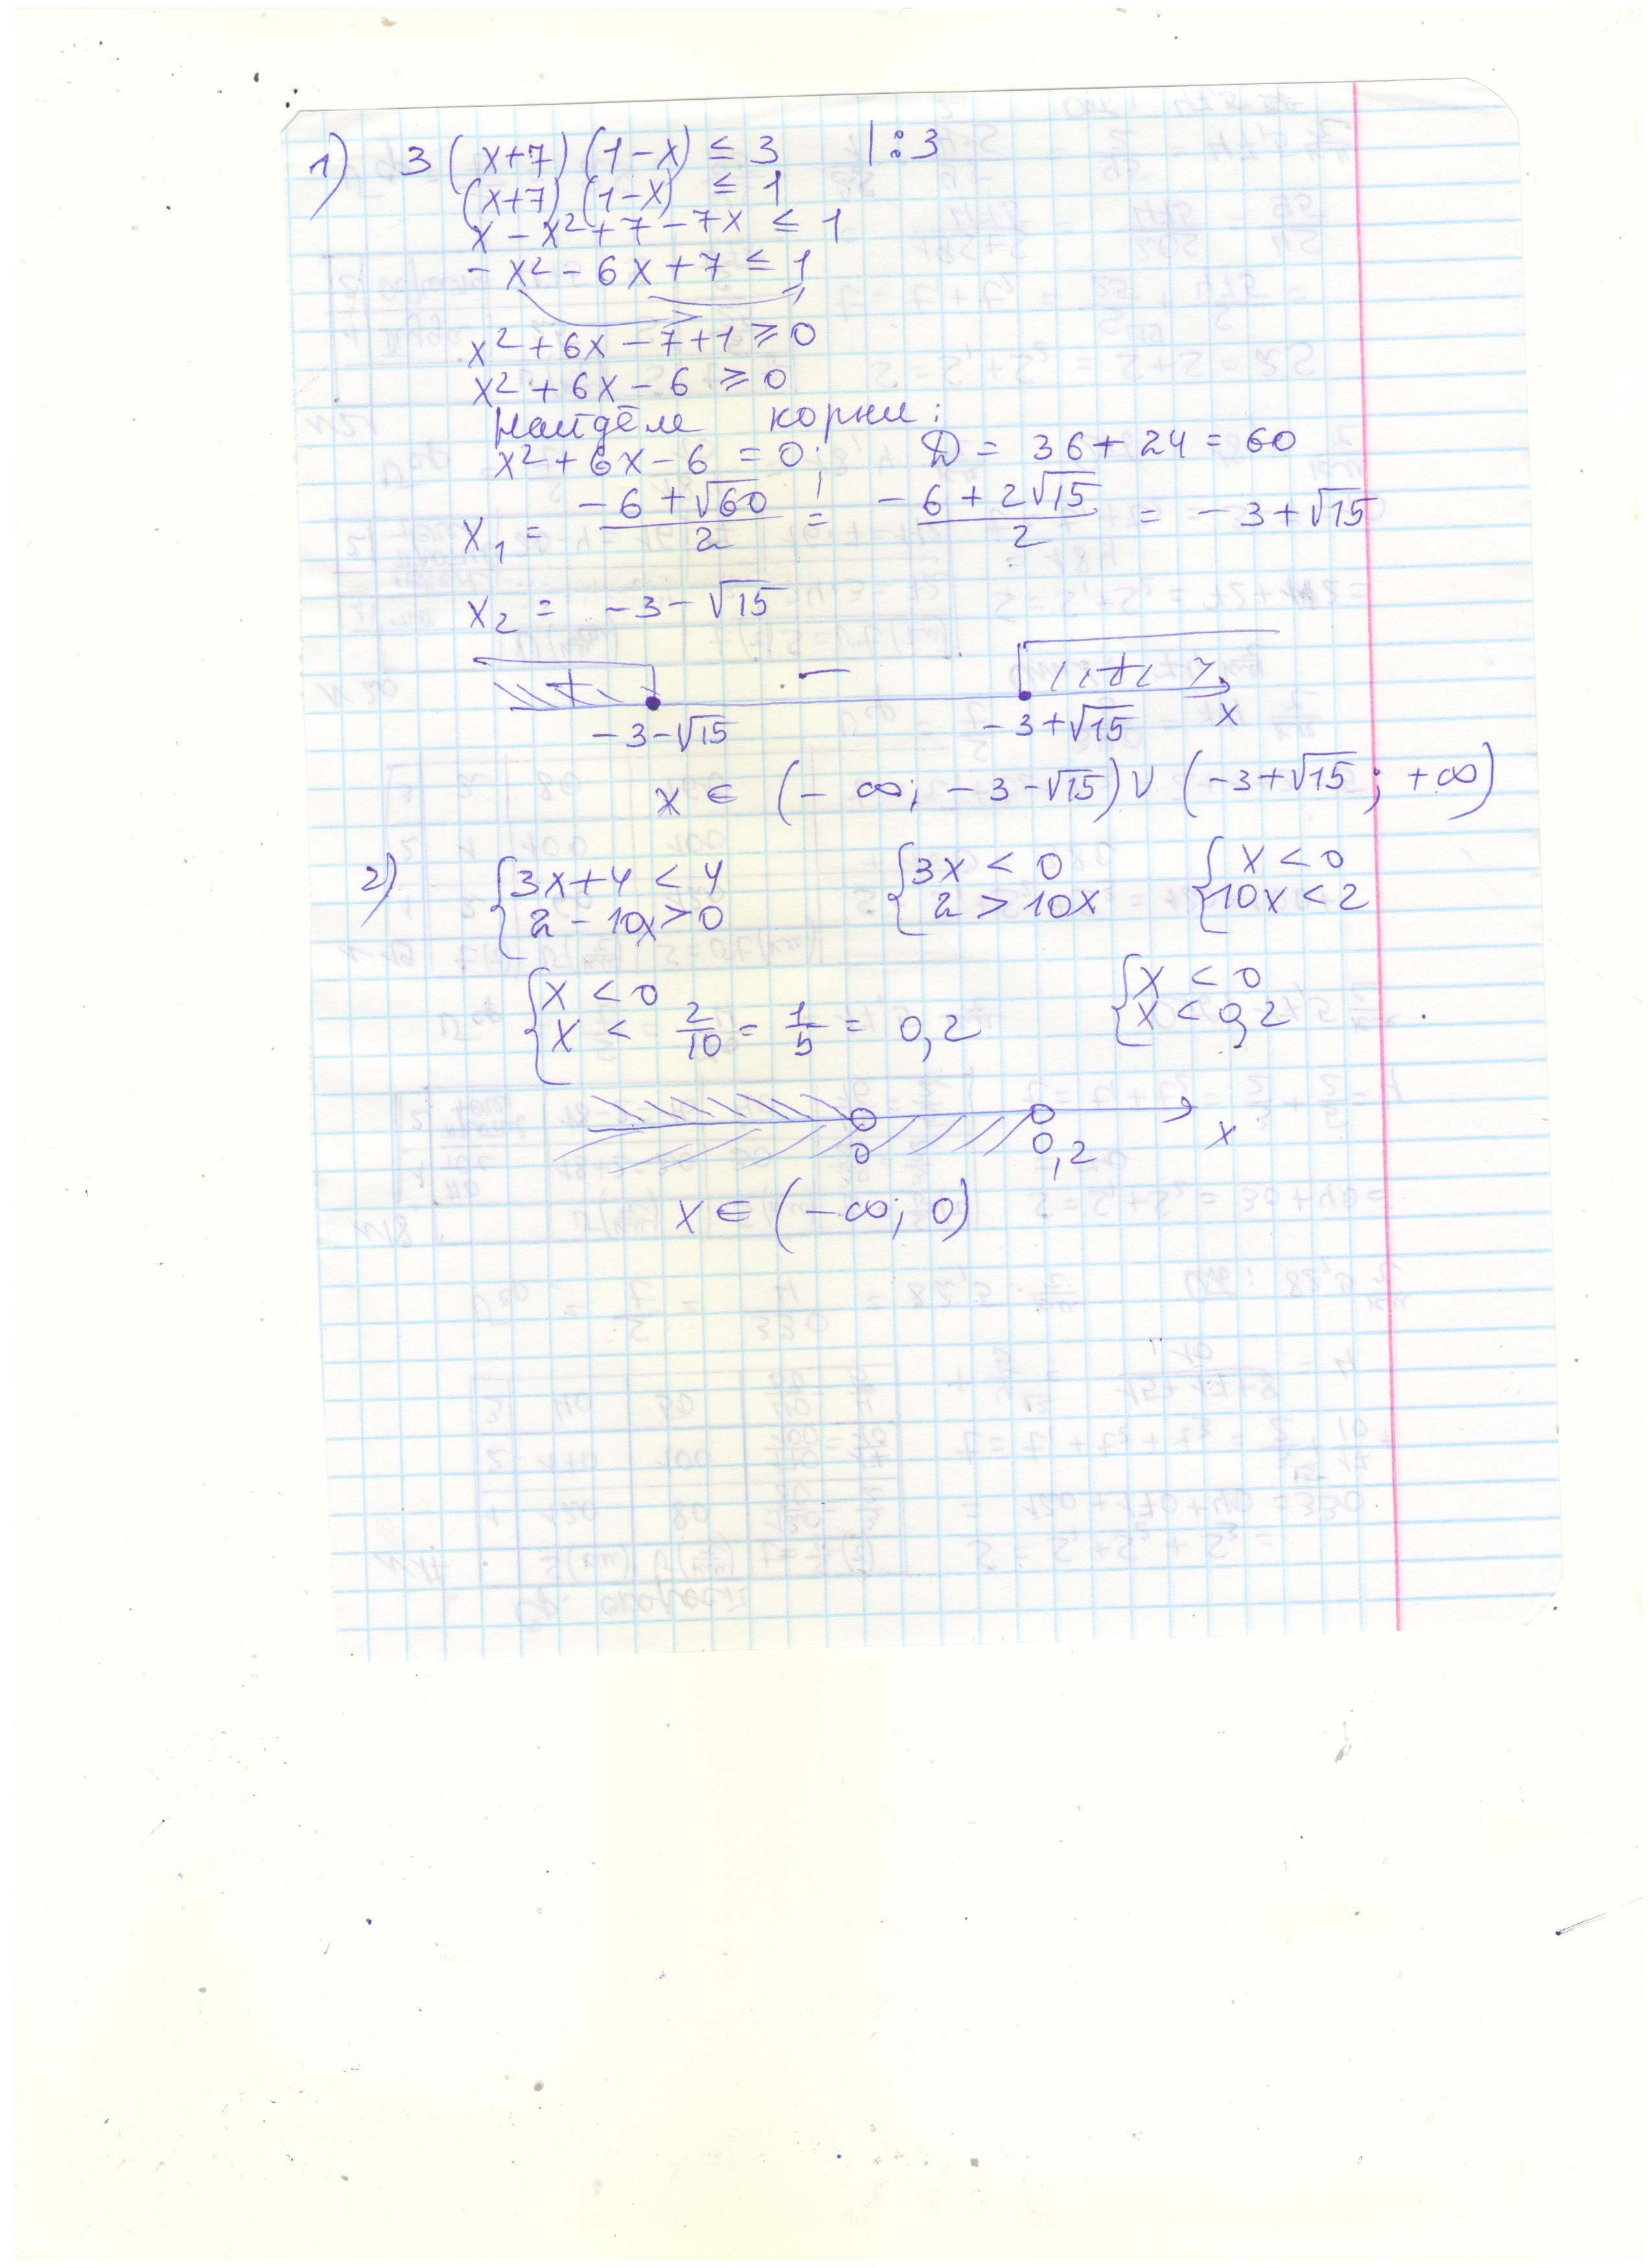 1) 3(x+7)(1-x) ≤ 3 |:3
(x+7)(1-x) ≤ 1
x - x² + 7 - 7x ≤ 1
-x² - 6x + 7 ≤ 1
x² + 6x - 7 + 1 ≥ 0
x² + 6x - 6 ≥ 0
Найдём корни:
x² + 6x - 6 = 0; D = 36 + 24 = 60
x₁ = (-6 + √60)/2 = (-6 + 2√15)/2 = -3 + √15
x₂ = -3 - √15
+ - +
-3-√15 -3+√15 x
x ∈ (-∞; -3-√15) ∪ (-3+√15; +∞)
2) {3x+4 < 4 {3x < 0 {x < 0
{2 - 10x > 0 {2 > 10x {10x < 2
{x < 0 {x < 0
{x < 2/10 = 1/5 = 0,2 {x < 0,2
0 0,2 x
x ∈ (-∞; 0)